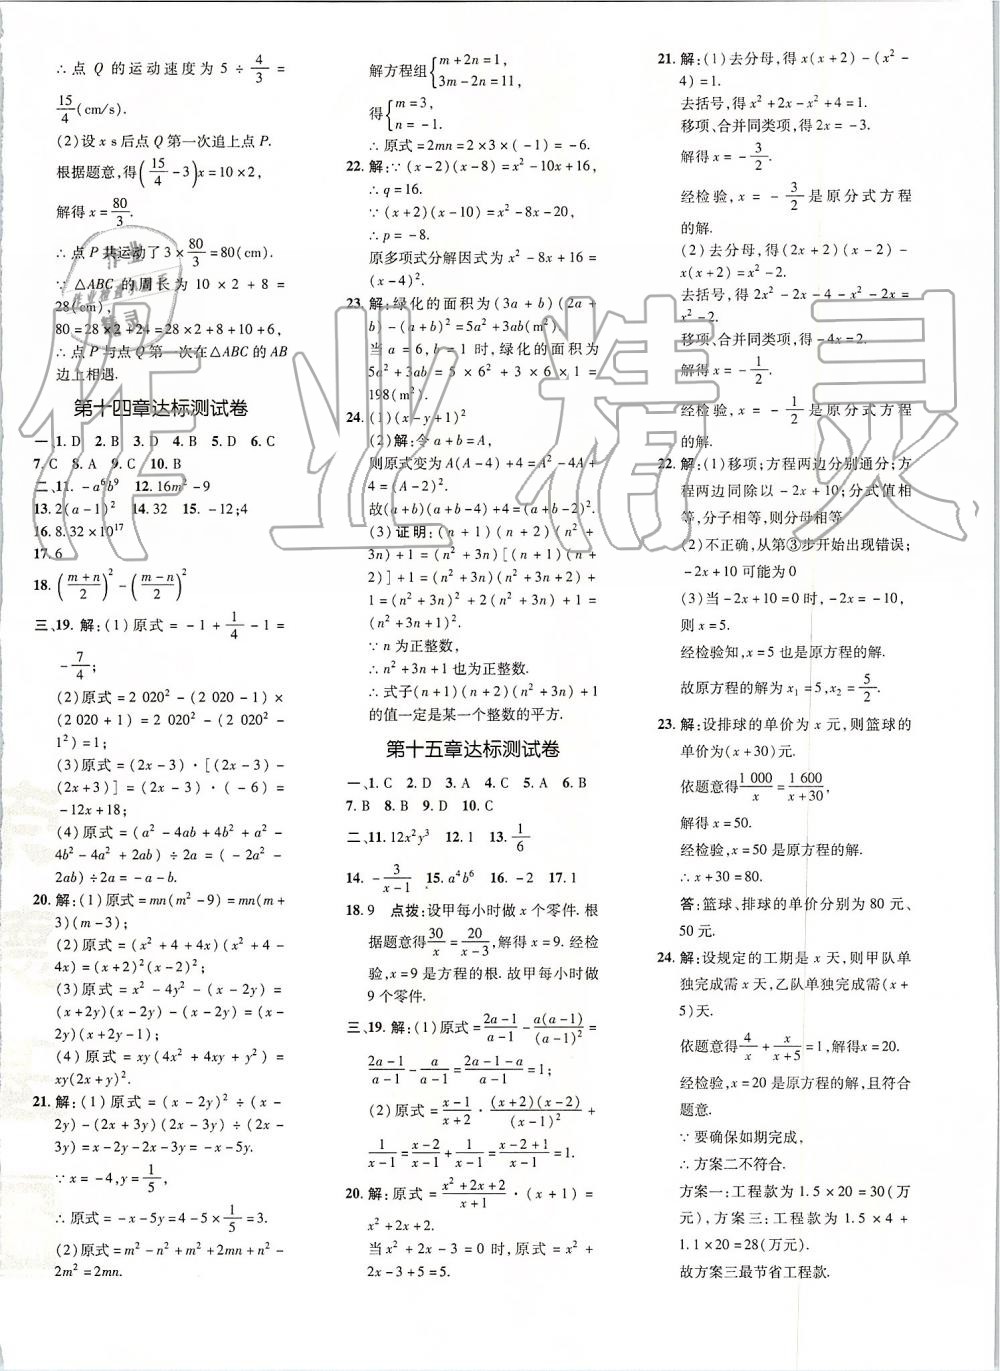 ∴点 Q 的运动速度为 5 ÷ 4/3 =
15/4(cm/s).
(2)设 x s后点 Q 第一次追上点 P.
根据题意,得(15/4 - 3)x = 10 × 2,
解得 x = 80/3.
∴点 P 共运动了 3 × 80/3 = 80(cm).
∵ △ABC 的周长为 10 × 2 + 8 =
28(cm),
80 = 28 × 2 + 24 = 28 × 2 + 8 + 10 + 6,
∴点 P 与点 Q 第一次在△ABC 的 AB
边上相遇.
第十四章达标测试卷
一、1. D 2. B 3. D 4. B 5. D 6. C
7. C 8. A 9. C 10. B
二、11. -a⁶b⁹ 12. 16m² - 9
13. 2(a - 1)² 14. 32 15. -12;4
16. 8.32 × 10¹⁷
17. 6
18. ((m+n)/2)² - ((m-n)/2)²
三、19. 解:(1)原式 = -1 + 1/4 - 1 =
-7/4;
(2)原式 = 2 020² - (2 020 - 1) ×
(2 020 + 1) = 2 020² - (2 020² -
1²) = 1;
(3)原式 = (2x - 3)·[(2x - 3) -
(2x + 3)] = (2x - 3)·(-6) =
-12x + 18;
(4)原式 = (a² - 4ab + 4b² + a² -
4b² - 4a² + 2ab) ÷ 2a = (-2a² -
2ab) ÷ 2a = -a - b.
20. 解:(1)原式 = mn(m² - 9) = mn(m +
3)(m - 3);
(2)原式 = (x² + 4 + 4x)(x² + 4 -
4x) = (x + 2)²(x - 2)²;
(3)原式 = x² - 4y² - (x - 2y) =
(x + 2y)(x - 2y) - (x - 2y) = (x -
2y)(x + 2y - 1);
(4)原式 = xy(4x² + 4xy + y²) =
xy(2x + y)².
21. 解:(1)原式 = (x - 2y)² ÷ (x -
2y) - (2x + 3y)(2x - 3y) ÷ (2x -
3y) = x - 2y - 2x - 3y = -x - 5y.
∵x = -4,y = 1/5,
∴原式 = -x - 5y = 4 - 5 × 1/5 = 3.
(2)原式 = m² - n² + m² + 2mn + n² -
2m² = 2mn.
解方程组{m + 2n = 1, 3m - 2n = 11,
得{m = 3, n = -1.
∴原式 = 2mn = 2 × 3 × (-1) = -6.
22. 解:∵(x - 2)(x - 8) = x² - 10x + 16,
∴q = 16.
∵(x + 2)(x - 10) = x² - 8x - 20,
∴p = -8.
原多项式分解因式为 x² - 8x + 16 =
(x - 4)².
23. 解:绿化的面积为(3a + b)(2a +
b) - (a + b)² = 5a² + 3ab(m²).
当 a = 6,b = 1 时,绿化的面积为
5a² + 3ab = 5 × 6² + 3 × 6 × 1 =
198(m²).
24. (1)(x - y + 1)²
(2)解:令 a + b = A,
则原式变为 A(A - 4) + 4 = A² - 4A +
4 = (A - 2)²,
故(a + b)(a + b - 4) + 4 = (a + b - 2)².
(3)证明:(n + 1)(n + 2)(n² +
3n) + 1 = (n² + 3n)[(n + 1)(n +
2)] + 1 = (n² + 3n)(n² + 3n + 2) +
1 = (n² + 3n)² + 2(n² + 3n) + 1 =
(n² + 3n + 1)².
∵n 为正整数,
∴n² + 3n + 1 也为正整数.
∴式子(n + 1)(n + 2)(n² + 3n) + 1
的值一定是某一个整数的平方.
第十五章达标测试卷
一、1. C 2. D 3. A 4. C 5. A 6. B
7. B 8. B 9. D 10. C
二、11. 12x²y³ 12. 1 13. 1/6
14. -3/(x-1) 15. a⁴b⁶ 16. -2 17. 1
18. 9 点拨:设甲每小时做 x 个零件. 根
据题意得30/x = 20/(x-3),解得 x = 9. 经检
验,x = 9 是方程的根. 故甲每小时做
9 个零件.
三、19. 解:(1)原式 = (2a-1)/(a-1) - a(a-1)/(a-1)² =
(2a-1)/(a-1) - a/(a-1) = (2a-1-a)/(a-1) = 1;
(2)原式 = (x-1)/(x+2) · (x+2)(x-2)/(x-1)² +
1/(x-1) = (x-2)/(x-1) + 1/(x-1) = (x-2+1)/(x-1) = 1.
20. 解:原式 = (x²+2x+2)/(x+1) · (x + 1) =
x² + 2x + 2.
当 x² + 2x - 3 = 0 时,原式 = x² +
2x - 3 + 5 = 5.
21. 解:(1)去分母,得 x(x + 2) - (x² -
4) = 1.
去括号,得 x² + 2x - x² + 4 = 1.
移项、合并同类项,得 2x = -3.
解得 x = -3/2.
经检验,x = -3/2 是原分式方程
的解.
(2)去分母,得 2x(x - 1) = x(x +
2) - x² - 2.
去括号,得 2x² - 2x - 4x = x² + 2x -
x² - 2.
移项、合并同类项,得 -4x = -2.
解得 x = 1/2.
经检验,x = -1/2 是原分式方程
的解.
22. 解:(1)移项;方程两边分别通分;方
程两边同除以 -2x + 10;分式值相
等,分子相等,则分母相等
(2)不正确,从第③步开始出现错误;
-2x + 10 可能为 0
(3)当 -2x + 10 = 0 时,-2x = -10,
则 x = 5.
经检验知,x = 5 也是原方程的解.
故原方程的解为 x₁ = 5,x₂ = 5/2.
23. 解:设排球的单价为 x 元,则篮球的
单价为(x + 30)元.
依题意得1 000/x = 1 600/(x+30),
解得 x = 50.
经检验,x = 50 是原方程的解.
∴x + 30 = 80.
答:篮球、排球的单价分别为 80 元、
50 元.
24. 解:设规定的工期是 x 天,则甲队单
独完成需 x 天,乙队单独完成需(x +
5)天.
依题意得4/x + x/(x+5) = 1,解得 x = 20.
经检验,x = 20 是原方程的解,且符合
题意.
∵要确保如期完成,
∴方案二不符合.
方案一:工程款为 1.5 × 20 = 30(万
元),方案三:工程款为 1.5 × 4 +
1.1 × 20 = 28(万元).
故方案三最节省工程款.
作业精灵